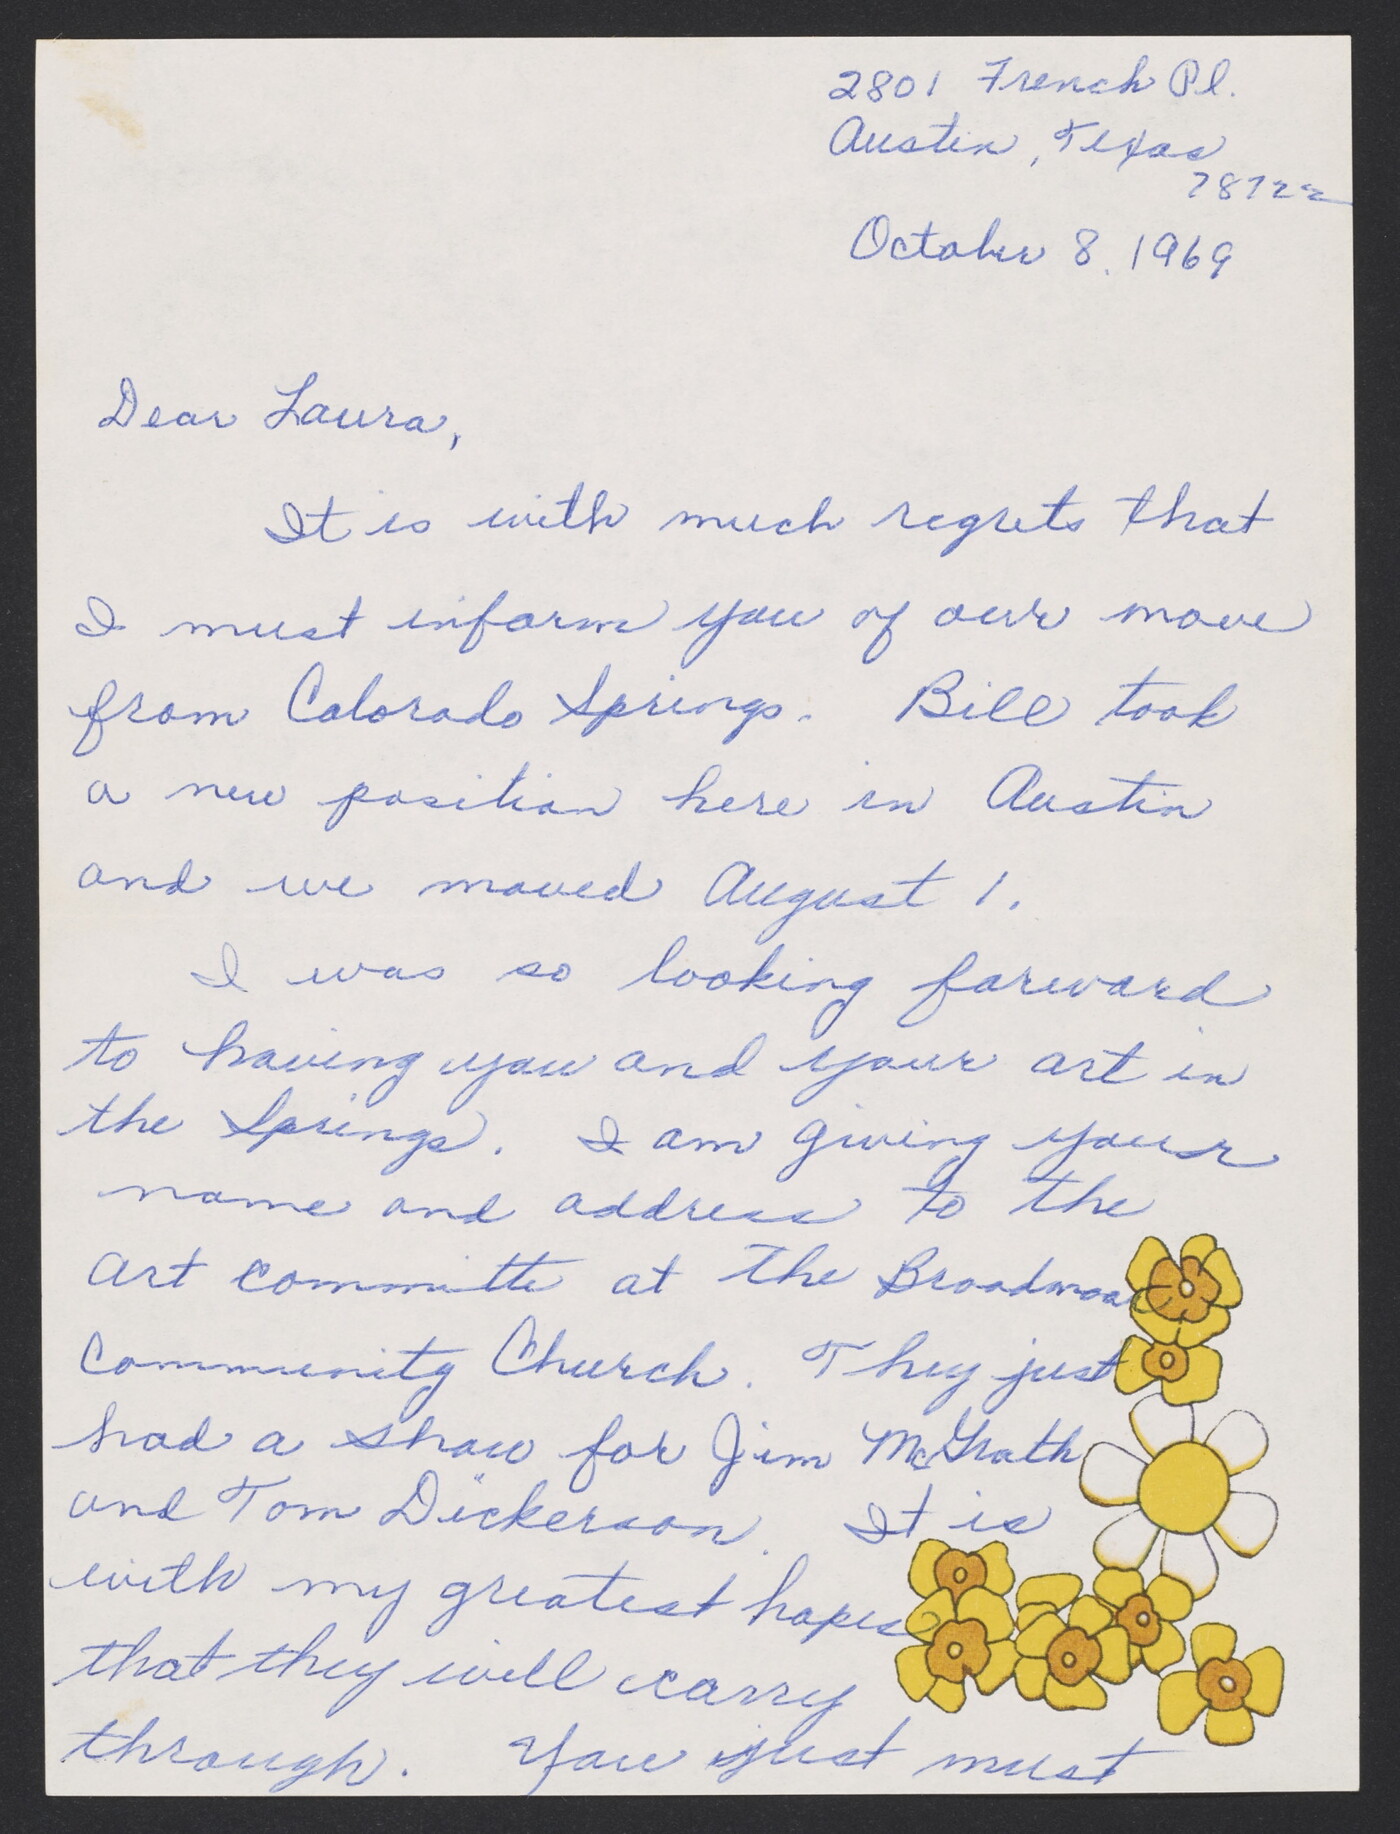 2801 French Pl.
Austin, Texas
78722
October 8, 1969
Dear Laura,
It is with much regrets that
I must inform you of our move
from Colorado Springs. Bill took
a new position here in Austin
and we moved August 1.
I was so looking forward
to having you and your art in
the Springs. I am giving your
name and address to the
art committe at the Broadmoor
Community Church. They just
had a show for Jim McGrath
and Tom Dickerson. It is
with my greatest hopes
that they will carry
through. You just must